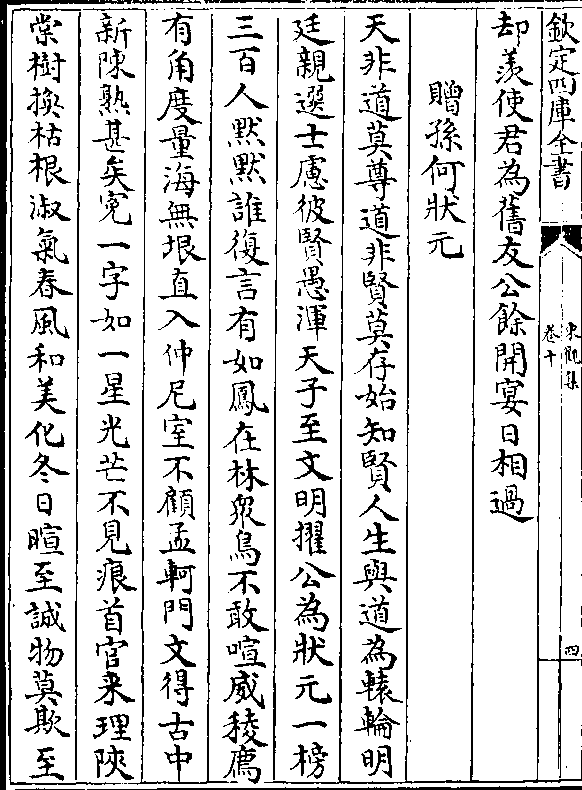 欽定四庫全書
東觀集
卷十
四
却羨使君為舊友公餘開宴日相過
贈孫何狀元
天非道莫尊道非賢莫存始知賢人生與道為轅輪明
廷親選士慮彼賢愚渾天子至文明擢公為狀元一榜
三百人默默誰復言有如鳳在林衆鳥不敢喧威稜廌
有角度量海無垠直入仲尼室不顧孟軻門文得古中
新陳熟甚矣寃一字如一星光芒不見痕首官来理陜
棠樹換枯根淑氣春風和美化冬日暄至誠物莫欺至